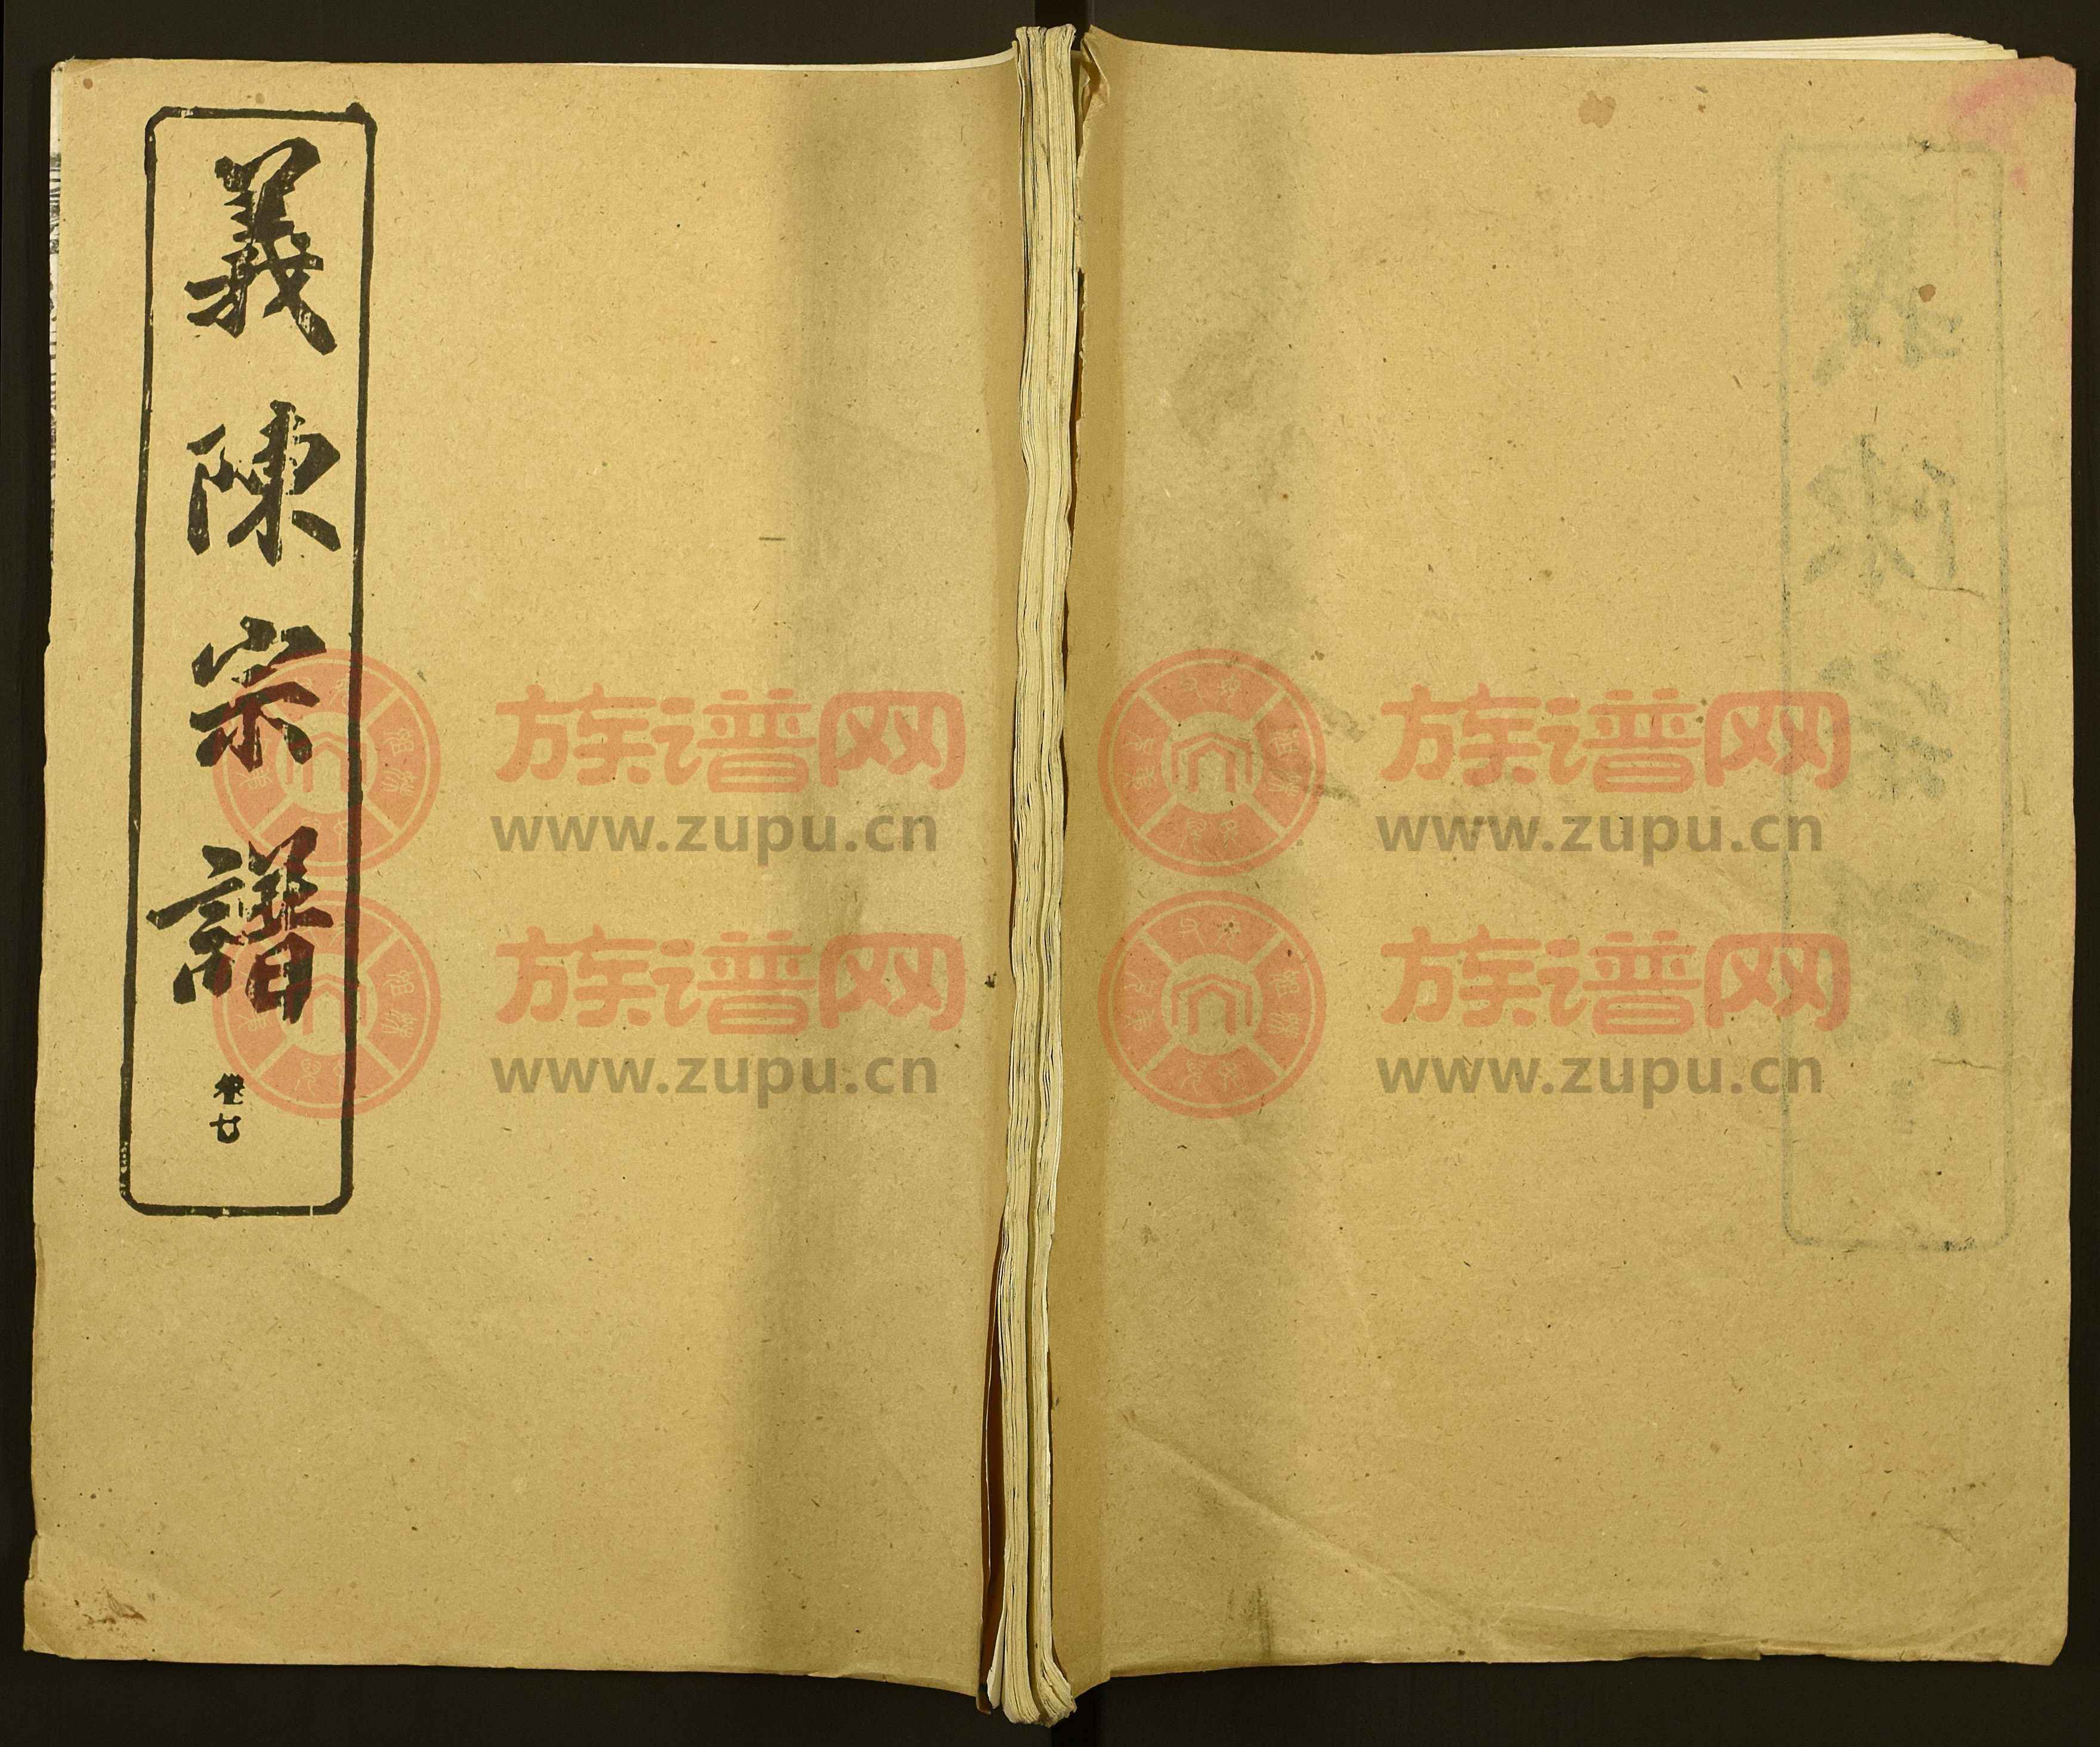 義陳宗譜
卷廿
族谱网
www.zupu.cn
族谱网
www.zupu.cn
族谱网
www.zupu.cn
族谱网
www.zupu.cn